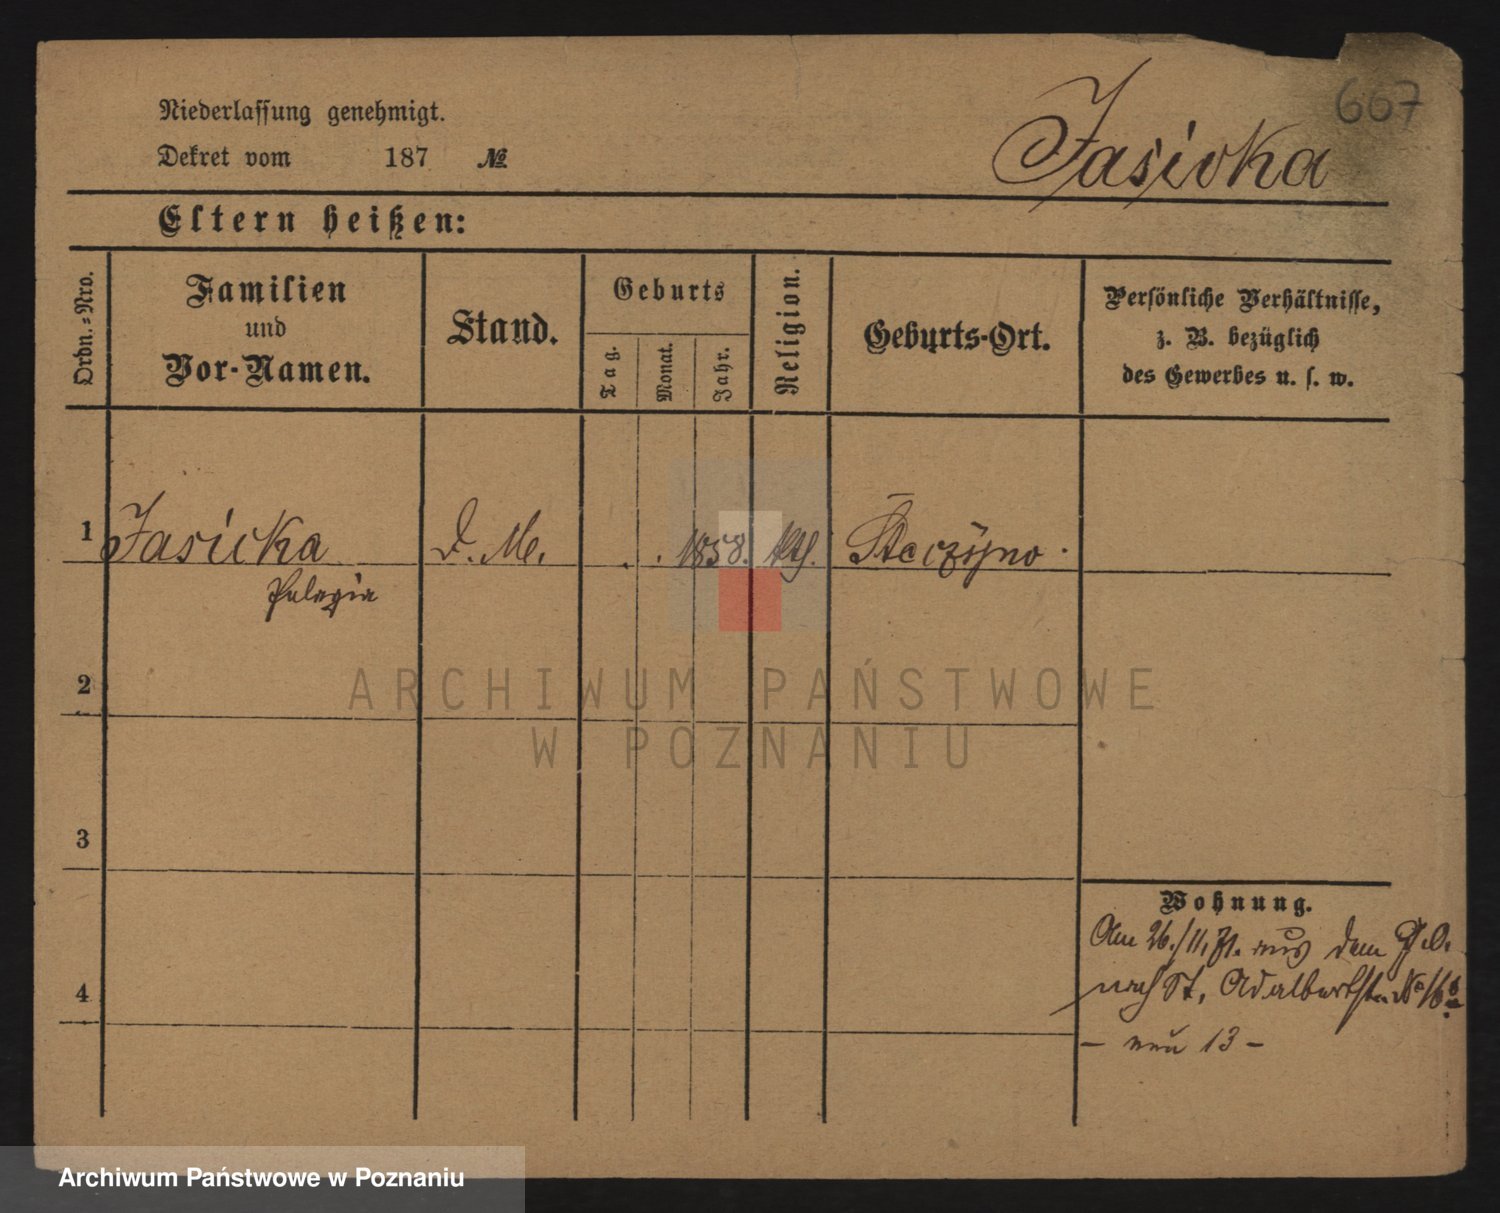 667
Niederlassung genehmigt.
Dekret vom 187 №
Jasicka
Eltern heißen:
Ordn.-Nro.
Familien
und
Vor-Namen.
Stand.
Geburts
Tag.
Monat.
Jahr.
Religion.
Geburts-Ort.
Persönliche Verhältnisse,
z. B. bezüglich
des Gewerbes u. s. w.
1 Jasicka D. M. 1858. kth.
Pelagia
2
3
4
Wohnung.
Am 26./11. 71. aus dem
nach St. Adalbertstr. No 16
- neu 13 -
ARCHIWUM PAŃSTWOWE
W POZNANIU
Archiwum Państwowe w Poznaniu